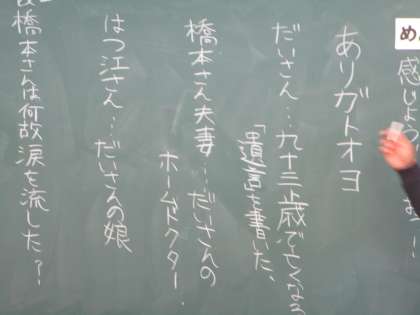 め
感じよう
ありガトオヨ
だいさん…九十三歳で亡くなる
「遺言を書いた、
橋本さん夫妻…だいさんの
ホームドクター.
はつ江さん…だいさんの娘
橋本さんは何故涙を流した?